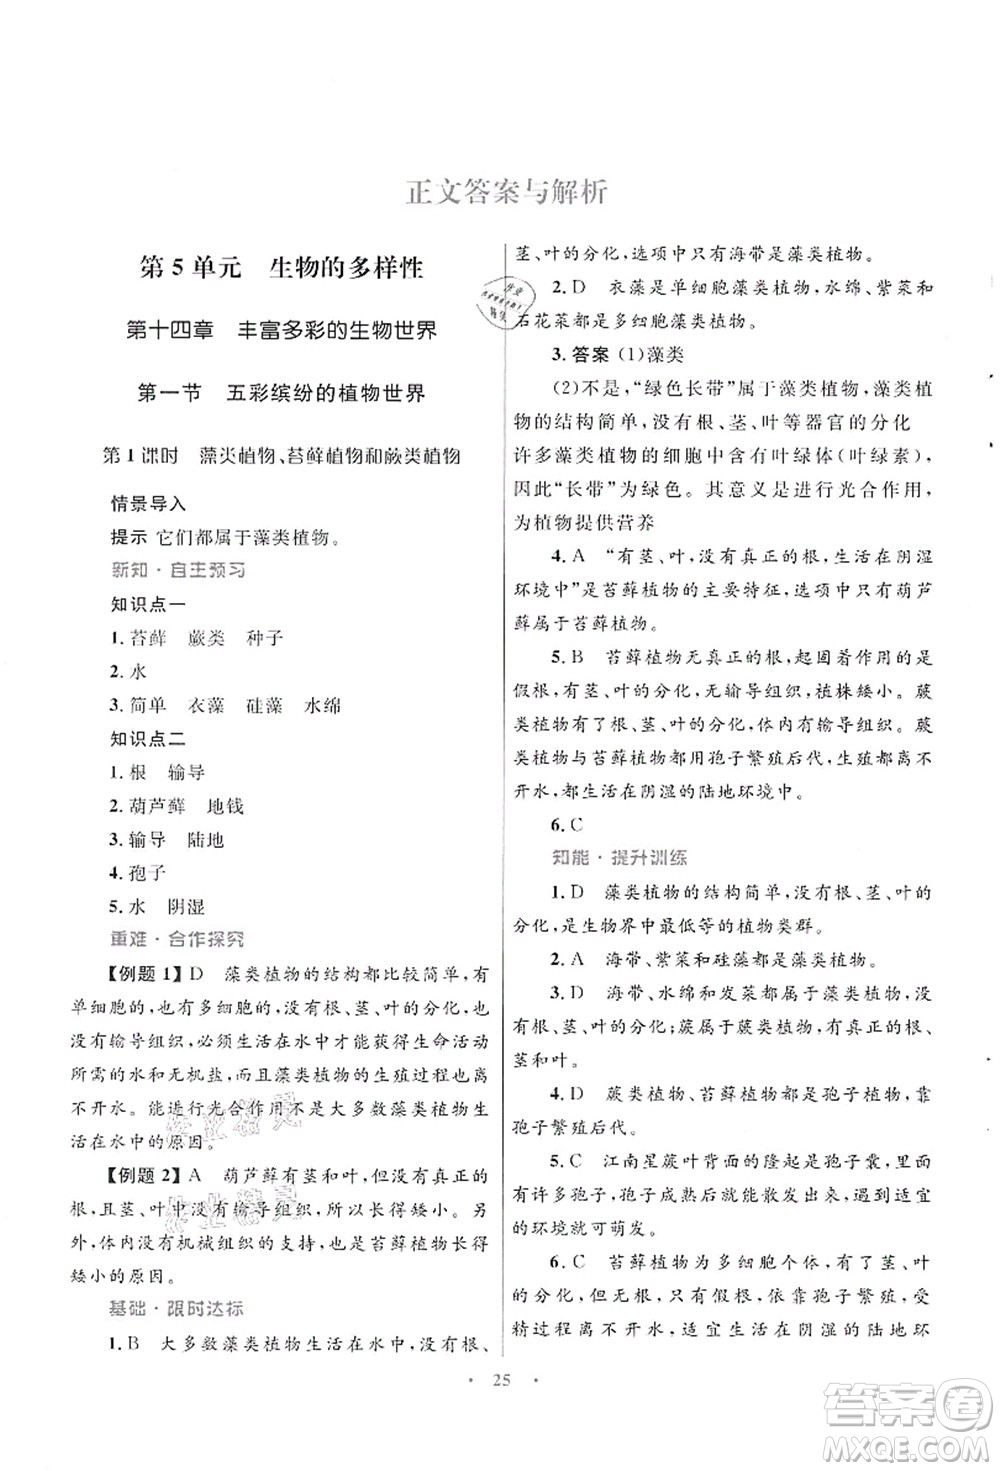 正文答案与解析
第5单元 生物的多样性
第十四章 丰富多彩的生物世界
第一节 五彩缤纷的植物世界
第1课时 藻类植物、苔藓植物和蕨类植物
情景导入
提示 它们都属于藻类植物。
新知·自主预习
知识点一
1.苔藓 蕨类 种子
2.水
3.简单 衣藻 硅藻 水绵
知识点二
1.根 输导
2.葫芦藓 地钱
3.输导 陆地
4.孢子
5.水 阴湿
重难·合作探究
【例题1】D 藻类植物的结构都比较简单,有
单细胞的,也有多细胞的,无根、茎、叶的分化,也
没有输导组织,必须生活在水中才能获得生命活动
所需的水和无机盐,而且藻类植物的生殖过程也离
不开水。能进行光合作用不是大多数藻类植物生
活在水中的原因。
【例题2】A 葫芦藓有茎和叶,但没有真正的
根,茎、叶中没有输导组织,所以长得矮小。另
外,体内没有机械组织的支持,也是苔藓植物长得
矮小的原因。
基础·限时达标
1.B 大多数藻类植物生活在水中,没有根、
茎、叶的分化,选项中只有海带是藻类植物。
2.D 衣藻是单细胞藻类植物,水绵、紫菜和
石花菜都是多细胞藻类植物。
3.答案 (1)藻类
(2)不是,“绿色长带”属于藻类植物,藻类植
物的结构简单,没有根、茎、叶等器官的分化
许多藻类植物的细胞中含有叶绿体(叶绿素),
因此“长带”为绿色。其意义是进行光合作用,
为植物提供营养
4.A “有茎、叶,没有真正的根,生活在阴湿
环境中”是苔藓植物的主要特征,选项中只有葫芦
藓属于苔藓植物。
5.B 苔藓植物无真正的根,起固着作用的是
假根,有茎、叶的分化,无输导组织,植株矮小。蕨
类植物有了根、茎、叶的分化,体内有输导组织。蕨
类植物与苔藓植物都用孢子繁殖后代,生殖都离不
开水,都生活在阴湿的陆地环境中。
6.C
知能·提升训练
1.D 藻类植物的结构简单,没有根、茎、叶的
分化,是生物界中最低等的植物类群。
2.A 海带、紫菜和硅藻都是藻类植物。
3.D 海带、水绵和发菜都属于藻类植物,没
有根、茎、叶的分化;蕨属于蕨类植物,有真正的根、
茎和叶。
4.D 蕨类植物、苔藓植物都是孢子植物,靠
孢子繁殖后代。
5.C 江南星蕨叶背面的隆起是孢子囊,里面
有许多孢子,孢子成熟后就会散发出来,遇到适宜
的环境就可萌发。
6.C 苔藓植物为多细胞个体,有了茎、叶
的分化,但是没有真根,只有假根,依靠孢子繁殖,受
精过程离不开水,适宜生活在阴湿的陆地环
· 25 ·
答案圈
MXQE.COM